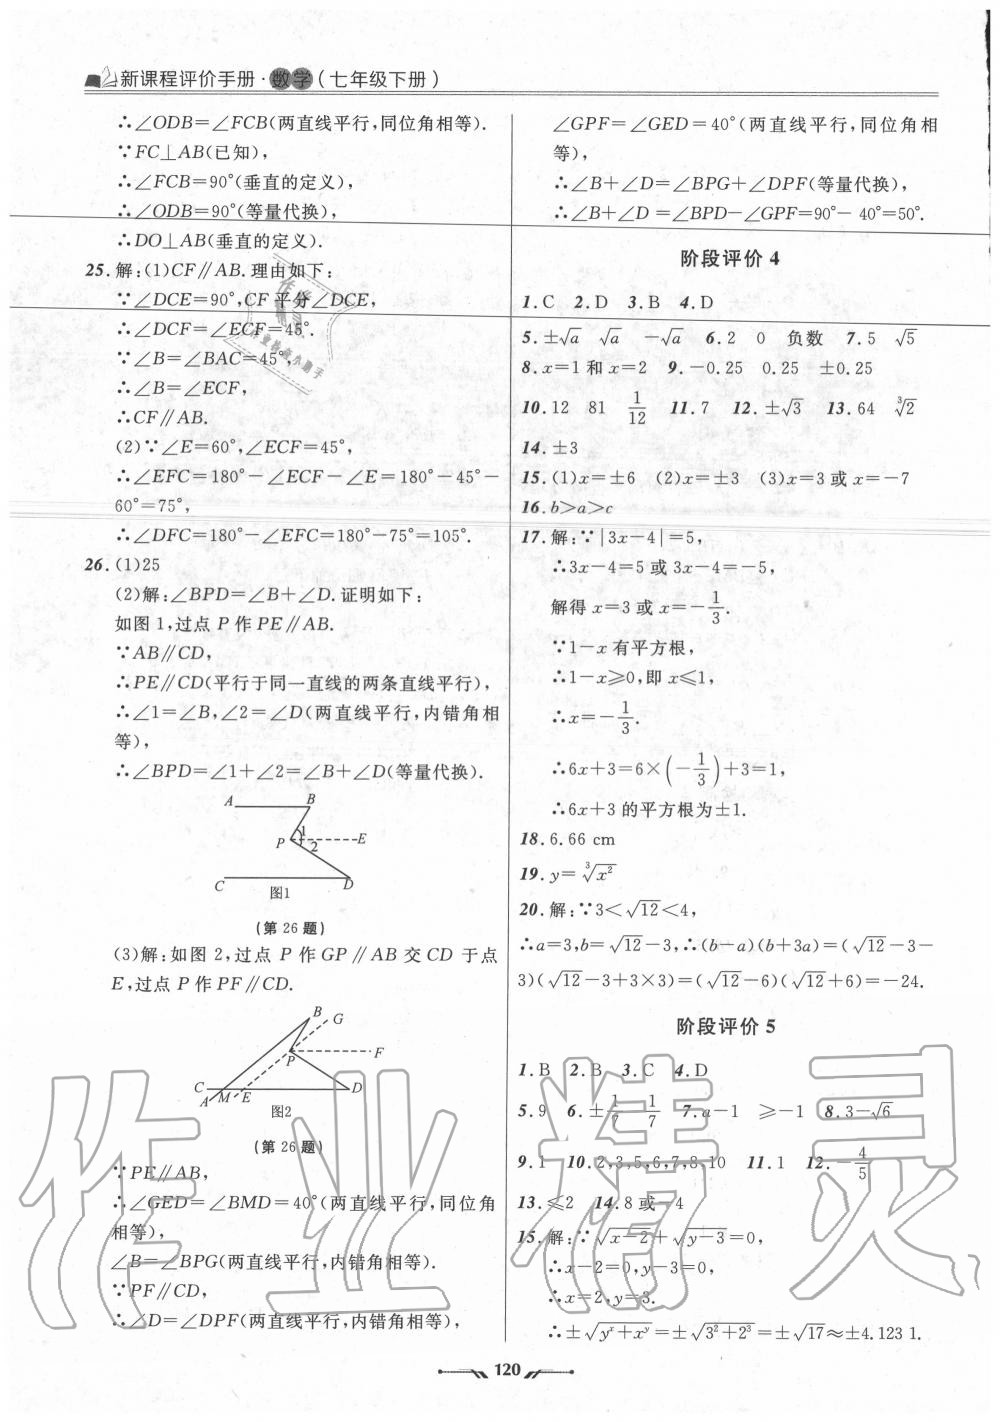 新课程评价手册·数学(七年级下册)
∴∠ODB=∠FCB(两直线平行,同位角相等).
∵FC⊥AB(已知),
∴∠FCB=90°(垂直的定义),
∴∠ODB=90°(等量代换),
∴DO⊥AB(垂直的定义).
25.解:(1)CF∥AB.理由如下:
∵∠DCE=90°,CF平分∠DCE,
∴∠DCF=∠ECF=45°.
∵∠B=∠BAC=45°,
∴∠B=∠ECF,
∴CF∥AB.
(2)∵∠E=60°,∠ECF=45°,
∴∠EFC=180°-∠ECF-∠E=180°-45°-
60°=75°,
∴∠DFC=180°-∠EFC=180°-75°=105°.
26.(1)25
(2)解:∠BPD=∠B+∠D.证明如下:
如图1,过点P作PE∥AB.
∵AB∥CD,
∴PE∥CD(平行于同一直线的两条直线平行),
∴∠1=∠B,∠2=∠D(两直线平行,内错角相
等),
∴∠BPD=∠1+∠2=∠B+∠D(等量代换).
A B
1
P 2 E
C D
图1
(第26题)
(3)解:如图2,过点P作GP∥AB交CD于点
E,过点P作PF∥CD.
B G
P F
C A M E D
图2
(第26题)
∵PE∥AB,
∴∠GED=∠BMD=40°(两直线平行,同位角
相等),
∠B=∠BPG(两直线平行,内错角相等).
∵PF∥CD,
∴∠D=∠DPF(两直线平行,内错角相等),
∠GPF=∠GED=40°(两直线平行,同位角相
等),
∴∠B+∠D=∠BPG+∠DPF(等量代换),
∴∠B+∠D=∠BPD-∠GPF=90°-40°=50°.
阶段评价4
1.C 2.D 3.B 4.D
5.±√a √a -√a 6.2 0 负数 7.5 √5
8.x=1和x=2 9.-0.25 0.25 ±0.25
10.12 81 1/12 11.7 12.±√3 13.64 ∛2
14.±3
15.(1)x=±6 (2)x=±3 (3)x=3或x=-7
16.b>a>c
17.解:∵|3x-4|=5,
∴3x-4=5或3x-4=-5,
解得x=3或x=-1/3.
∵1-x有平方根,
∴1-x≥0,即x≤1,
∴x=-1/3.
∴6x+3=6×(-1/3)+3=1,
∴6x+3的平方根为±1.
18.6.66 cm
19.y=∛x²
20.解:∵3<√12<4,
∴a=3,b=√12-3,∴(b-a)(b+3a)=(√12-3-
3)(√12-3+3×3)=(√12-6)(√12+6)=-24.
阶段评价5
1.B 2.B 3.C 4.D
5.9 6.±1/7 1/7 7.a-1 ≥-1 8.3-√6
9.1 10.2,3,5,6,7,8,10 11.1 12.-4/5
13.≤2 14.8或-4
15.解:∵√(x-2)+√(y-3)=0,
∴x-2=0,y-3=0,
∴x=2,y=3.
∴±√(yˣ+xʸ)=±√(3²+2³)=±√17≈±4.123 1.
120
作业精灵